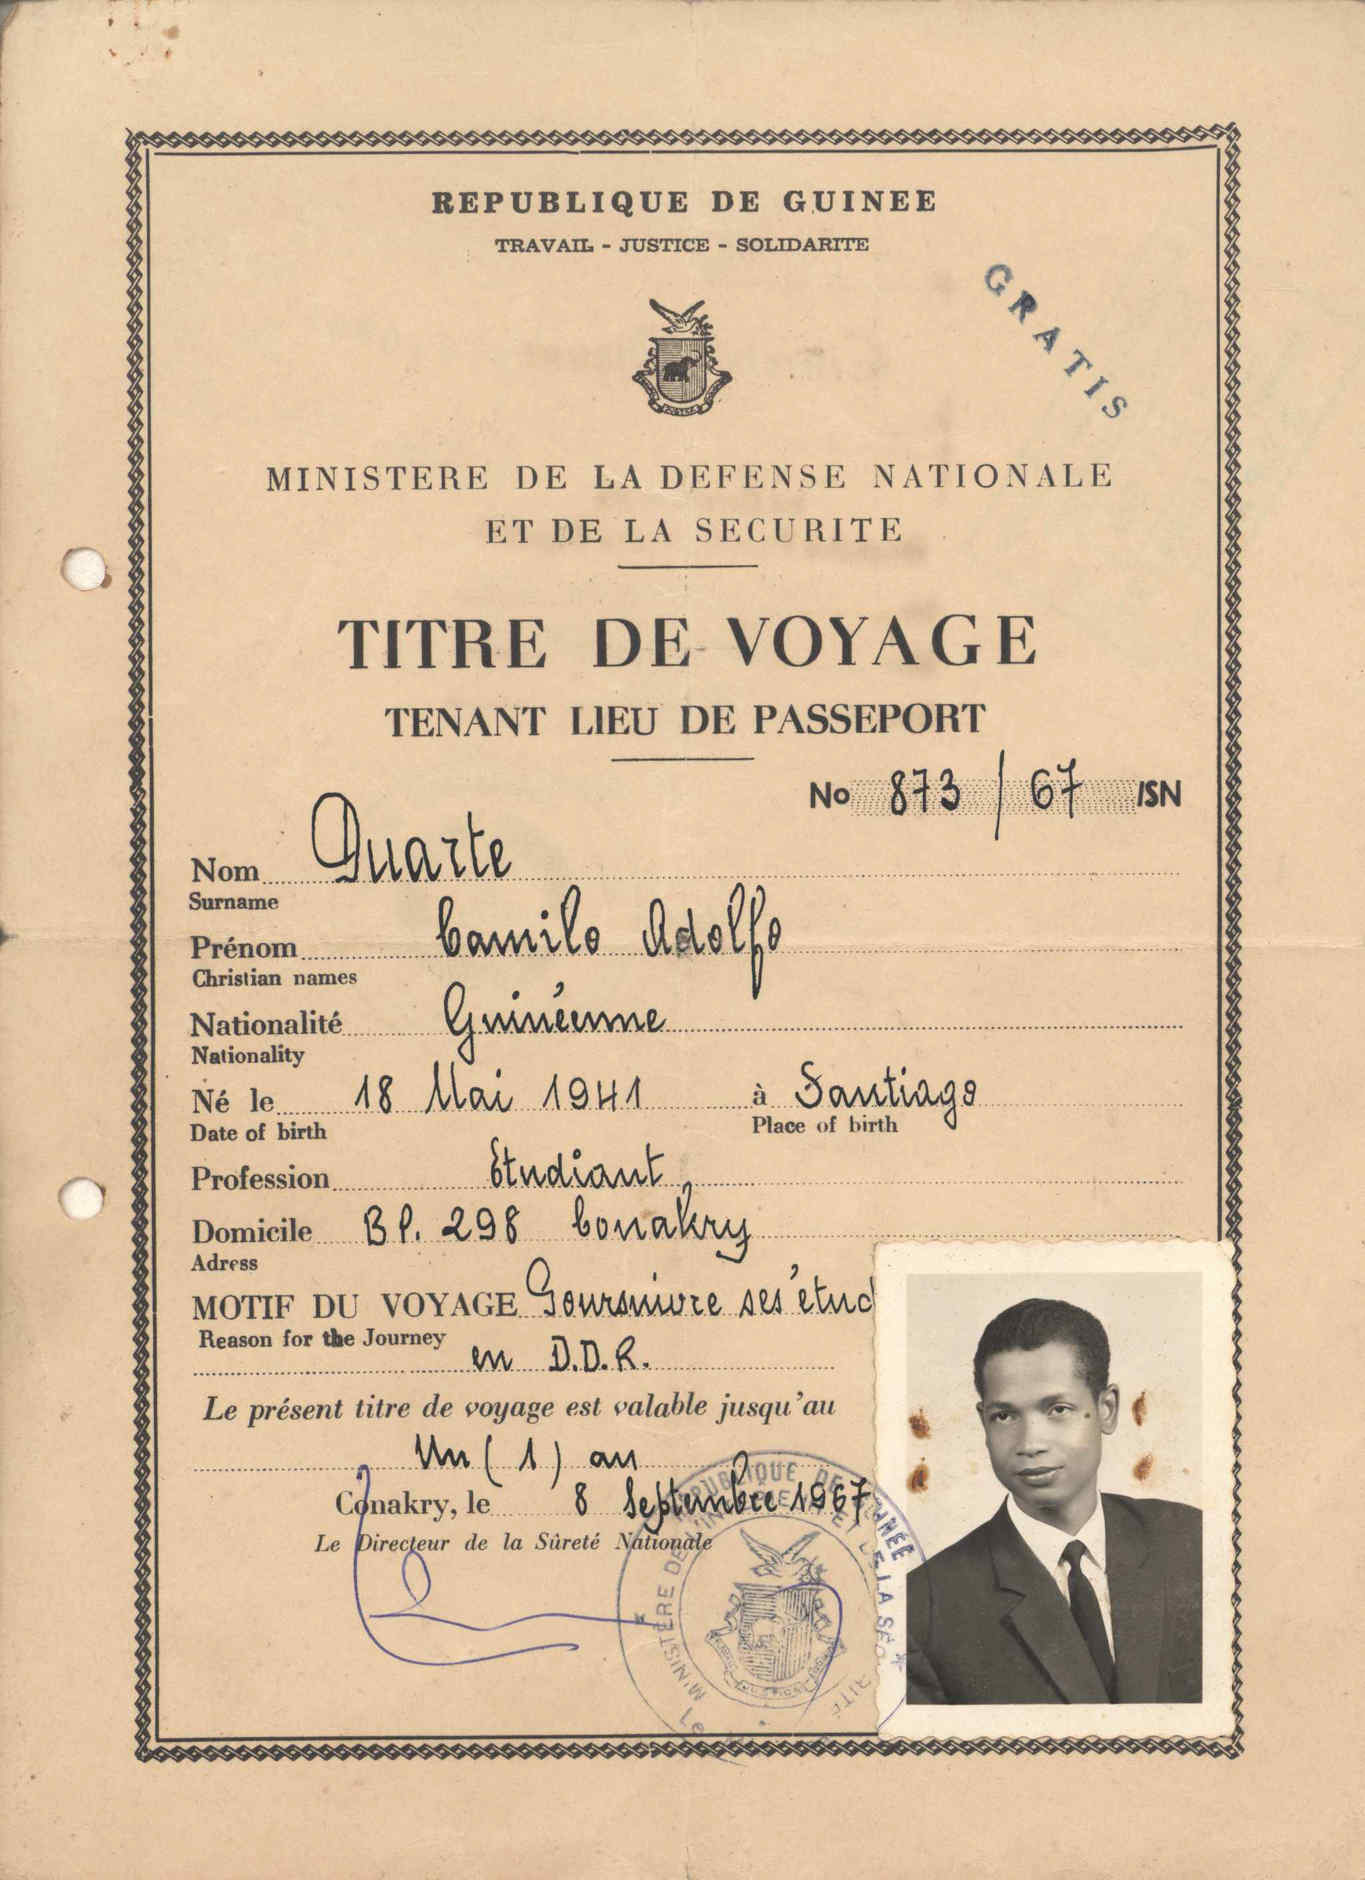 REPUBLIQUE DE GUINEE
TRAVAIL - JUSTICE - SOLIDARITE
GRATIS
MINISTERE DE LA DEFENSE NATIONALE
ET DE LA SECURITE
TITRE DE VOYAGE
TENANT LIEU DE PASSEPORT
No 873 / 67 /SN
Nom Duarte
Surname
Prénom Camilo Adolfo
Christian names
Nationalité Guinéenne
Nationality
Né le 18 Mai 1941 à Santiago
Date of birth Place of birth
Profession Étudiant
Domicile B P. 298 Conakry
Adress
MOTIF DU VOYAGE Poursuivre ses étud
Reason for the Journey
en D.D.R.
Le présent titre de voyage est valable jusqu'au
Un ( 1 ) an
Conakry, le 8 Septembre 1967
Le Directeur de la Sûreté Nationale
REPUBLIQUE DE GUINÉE
MINISTÈRE DE L'INTÉRIEUR ET DE LA SÉCURITÉ